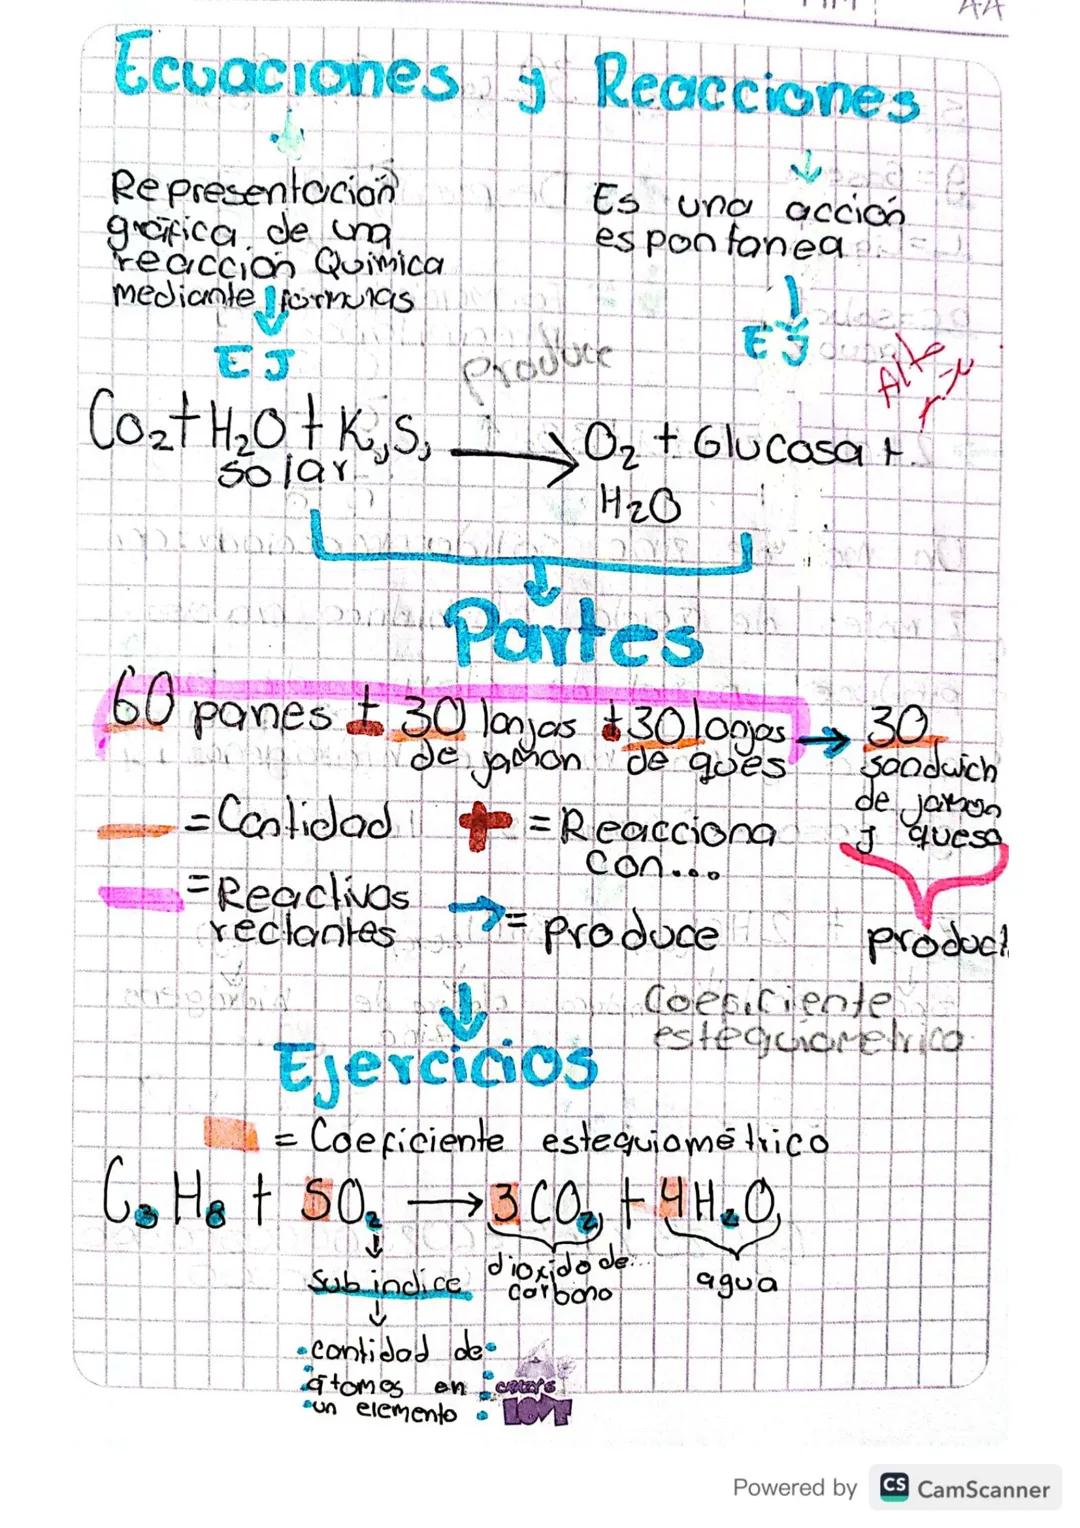 AA
Ecuaciones y Reacciones
Representación
gráfica de una
reacción Química
mediante formulas
EJ
Es una acción
espontanea
EJ
produce
Co₂ + H₂O + K,S,
solar
O₂ + Glucosa +
H₂O
Partes
60 panes + 30 lonjas + 30 lonjas → 30
de jamon de ques sandwich
de jamon
y queso
= Cantidad + = Reacciona
con...
= Reactivos → = produce
rectantes
product
Coeficiente
estequiometrico
Ejercicios
= Coeficiente estequiométrico
C₃H₈ + 5O₂ → 3CO₂ + 4H₂O
sub indice
dioxido de...
carbono
agua
• cantidad de •
• átomos en •
• un elemento •
LOVE
Powered by CS CamScanner